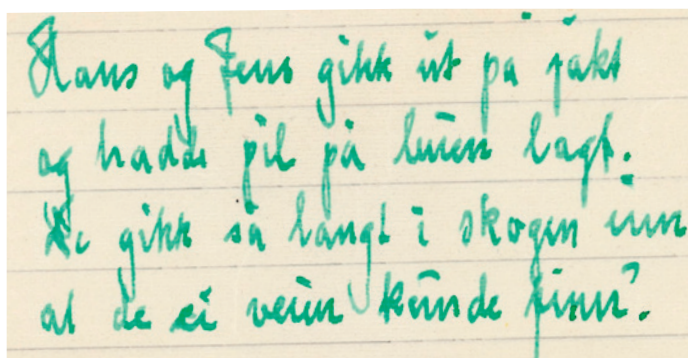 Hans og Jens gikk ut på jakt
og hadde pil på buen lagt.
De gikk så langt i skogen inn
at de ei veien kunde finn'.